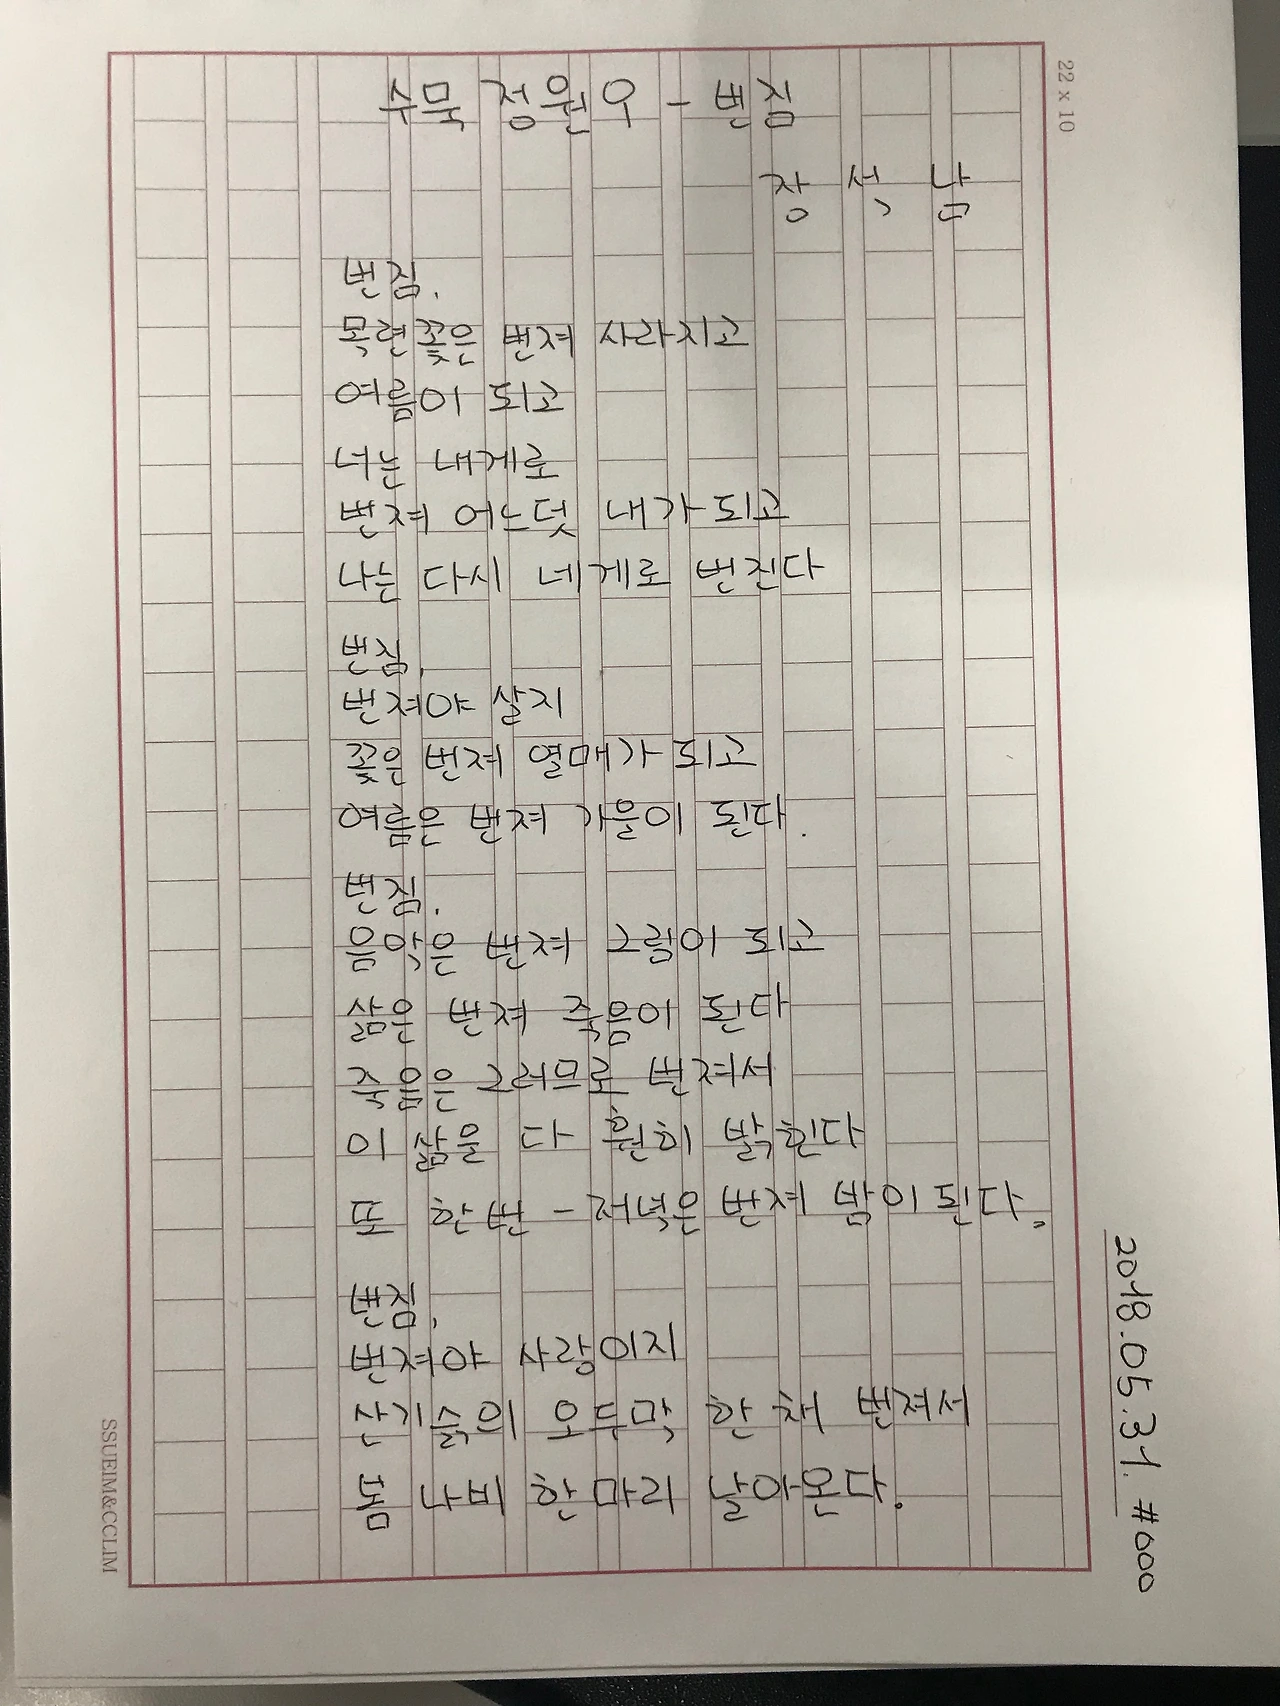 수묵 정원 9 - 번짐
장석남
번짐.
목련꽃은 번져 사라지고
여름이 되고
너는 내게로
번져 어느덧 내가 되고
나는 다시 네게로 번진다
번짐,
번져야 살지
꽃은 번져 열매가 되고
여름은 번져 가을이 된다.
번짐.
음악은 번져 그림이 되고
삶은 번져 죽음이 된다
죽음은 그러므로 번져서
이 삶을 다 훤히 밝힌다
또 한번 - 저녁은 번져 밤이 된다.
번짐,
번져야 사랑이지
산기슭의 오두막 한 채 번져서
봄 나비 한 마리 날아온다.
22 x 10
2018.05.31. #000
SSUEIM&CCLIM